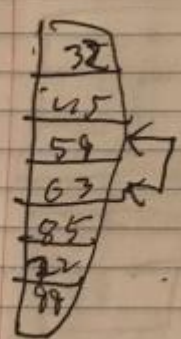 32
45
59
63
85
22
99